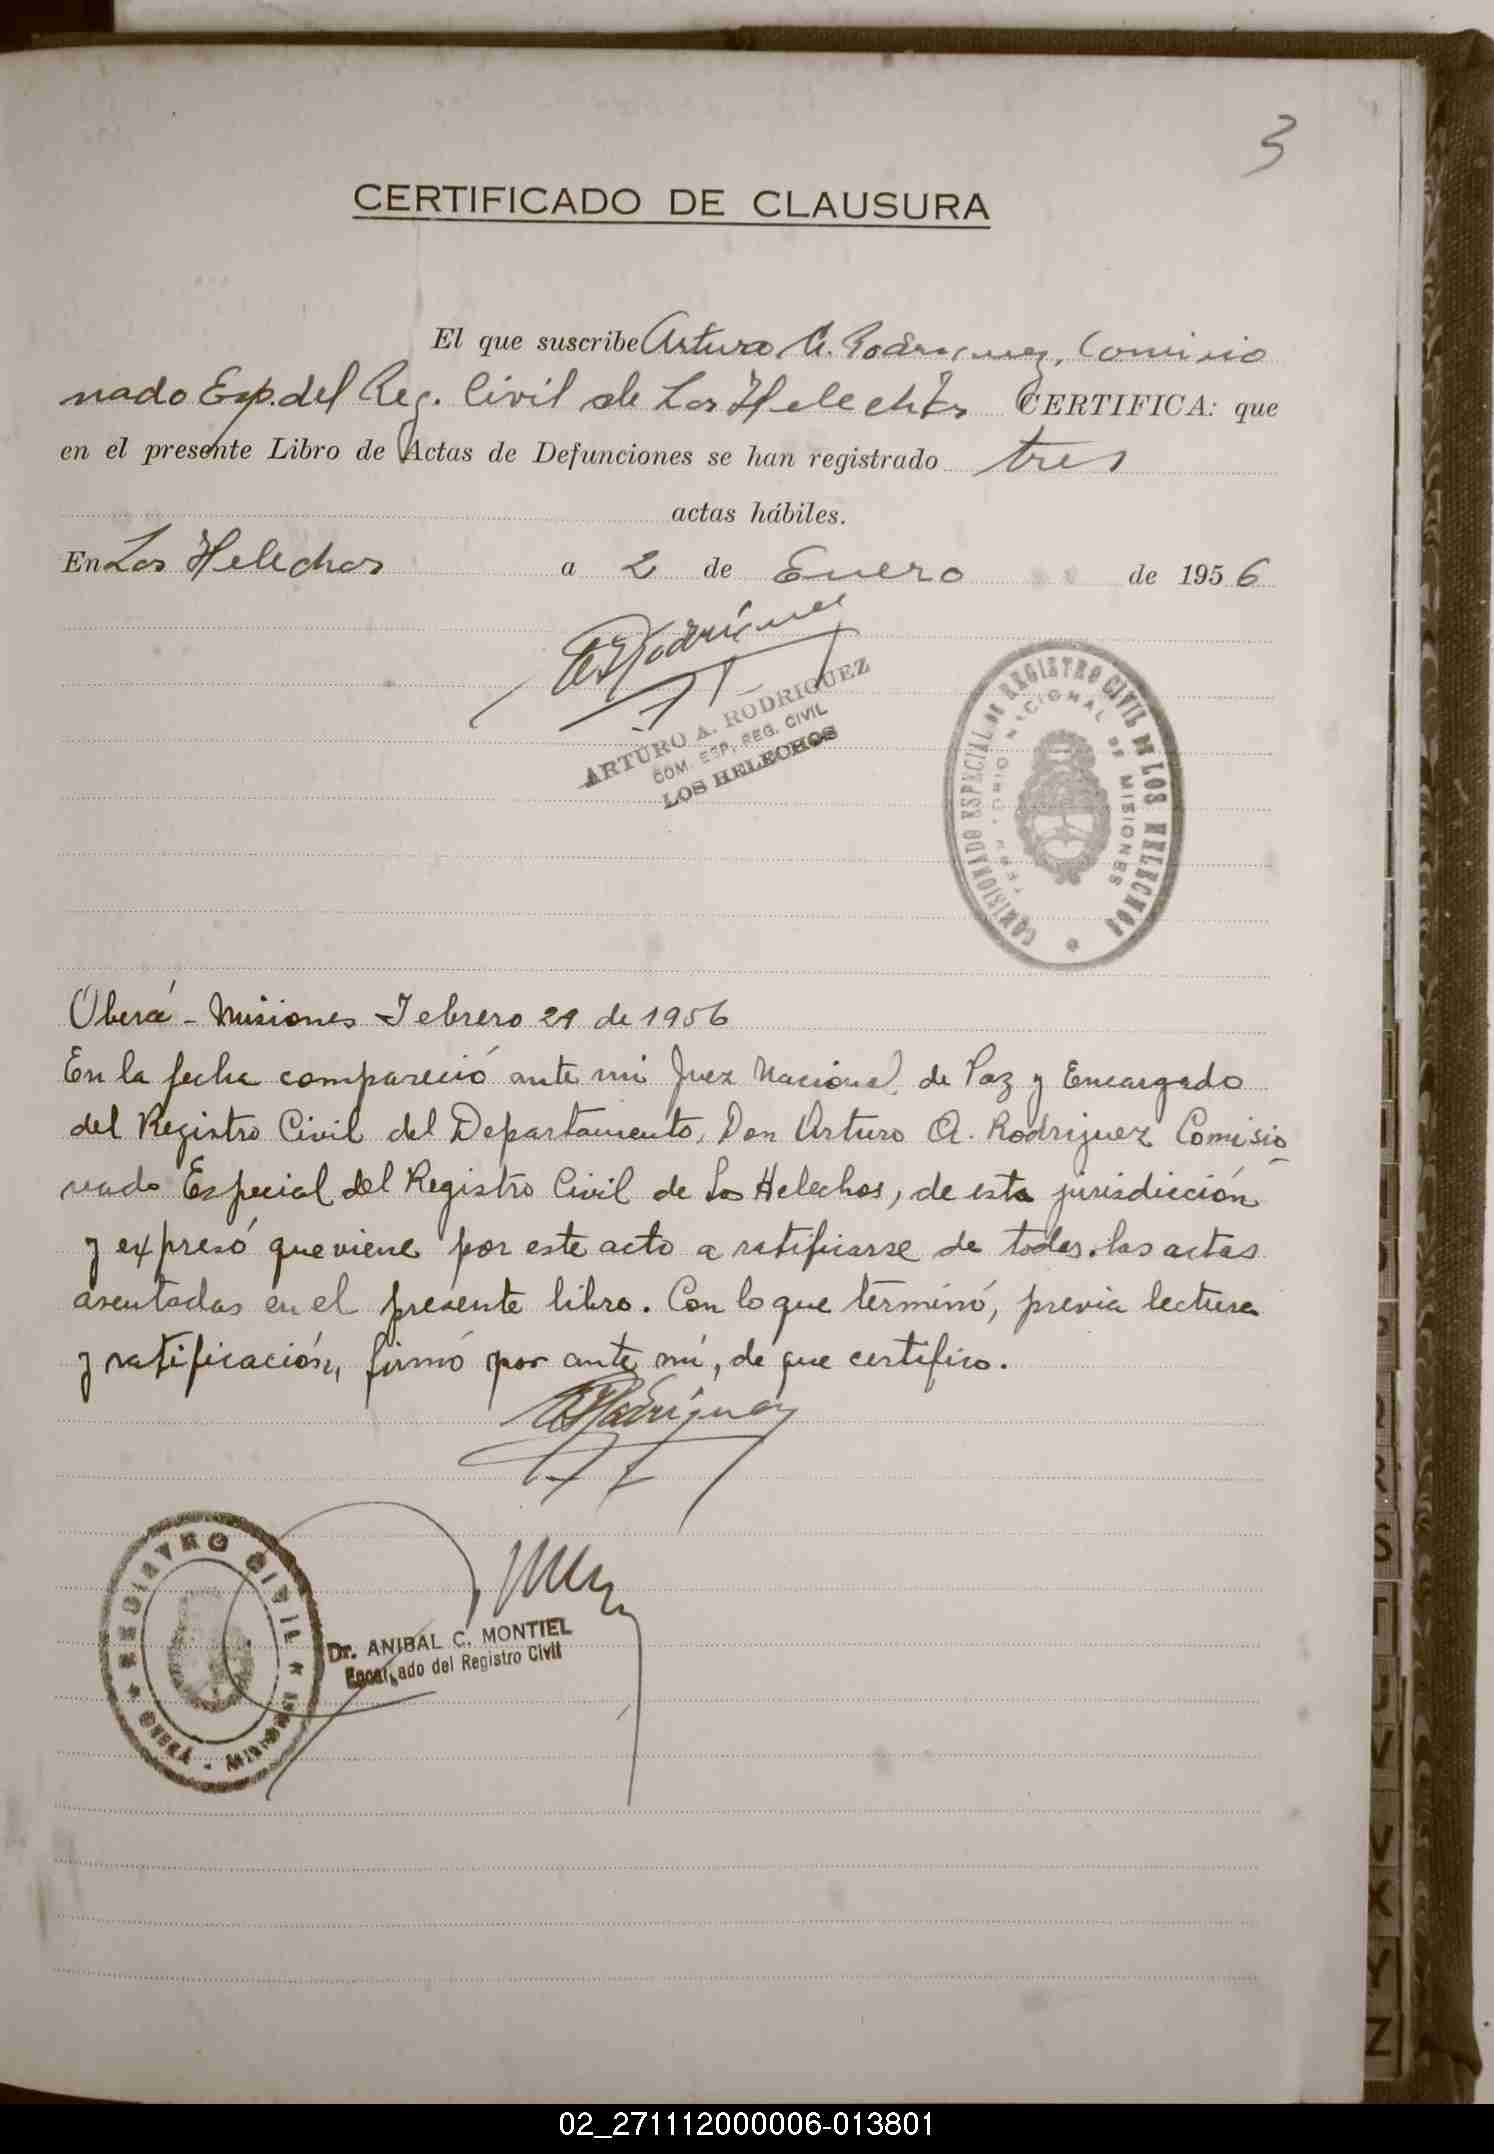 3
CERTIFICADO DE CLAUSURA
El que suscribe Arturo A. Rodriguez, Comisio
nado Esp. del Reg. Civil de Los Helechos CERTIFICA: que
en el presente Libro de Actas de Defunciones se han registrado tres
actas hábiles.
En Los Helechos a 2 de Enero de 1956
A Rodríguez
ARTURO A. RODRIGUEZ
COM. ESP. REG. CIVIL
LOS HELECHOS
COMISIONADO ESPECIAL DE REGISTRO CIVIL DE LOS HELECHOS
TERRITORIO NACIONAL DE MISIONES
Oberá - Misiones Febrero 29 de 1956
En la fecha compareció ante mi Juez Nacional de Paz y Encargado
del Registro Civil del Departamento, Don Arturo A. Rodriguez Comisio
nado Especial del Registro Civil de Los Helechos, de esta jurisdicción
y expresó que viene por este acto a ratificarse de todas las actas
asentadas en el presente libro. Con lo que terminó, previa lectura
y ratificación, firmó por ante mí, de que certifico.
A Rodríguez
REGISTRO CIVIL
Dr. ANIBAL C. MONTIEL
Encargado del Registro Civil
S
T
U
V
X
Y
Z
02_271112000006-013801